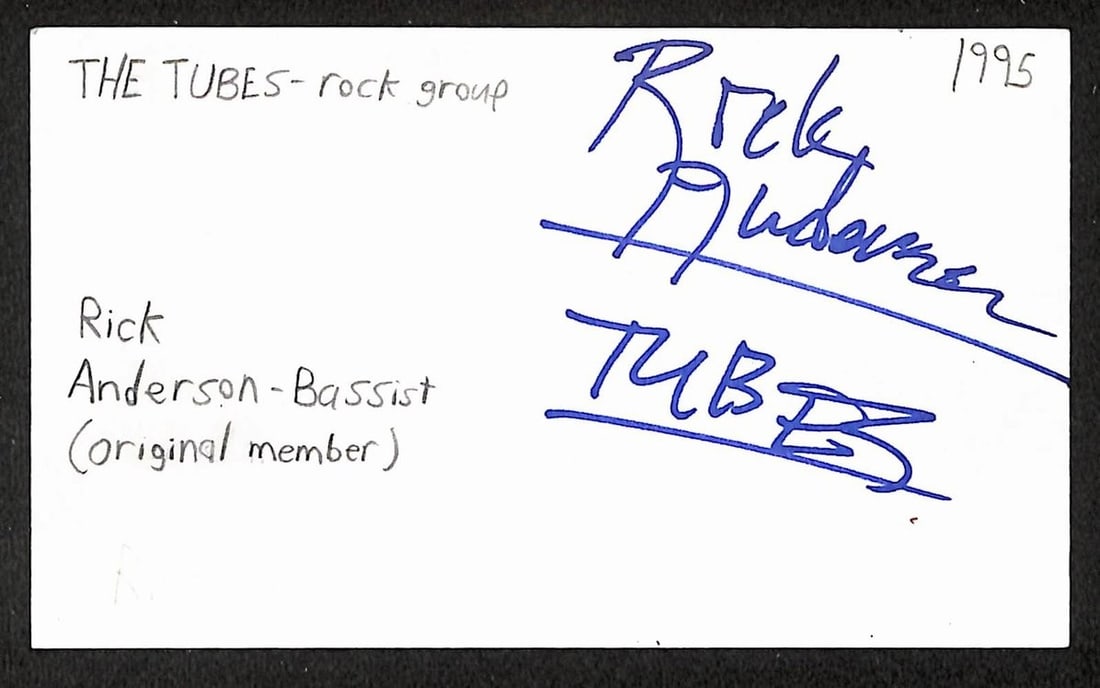 THE TUBES - rock group
1995
Rick
Anderson
TUBES
Rick
Anderson - Bassist
(original member)